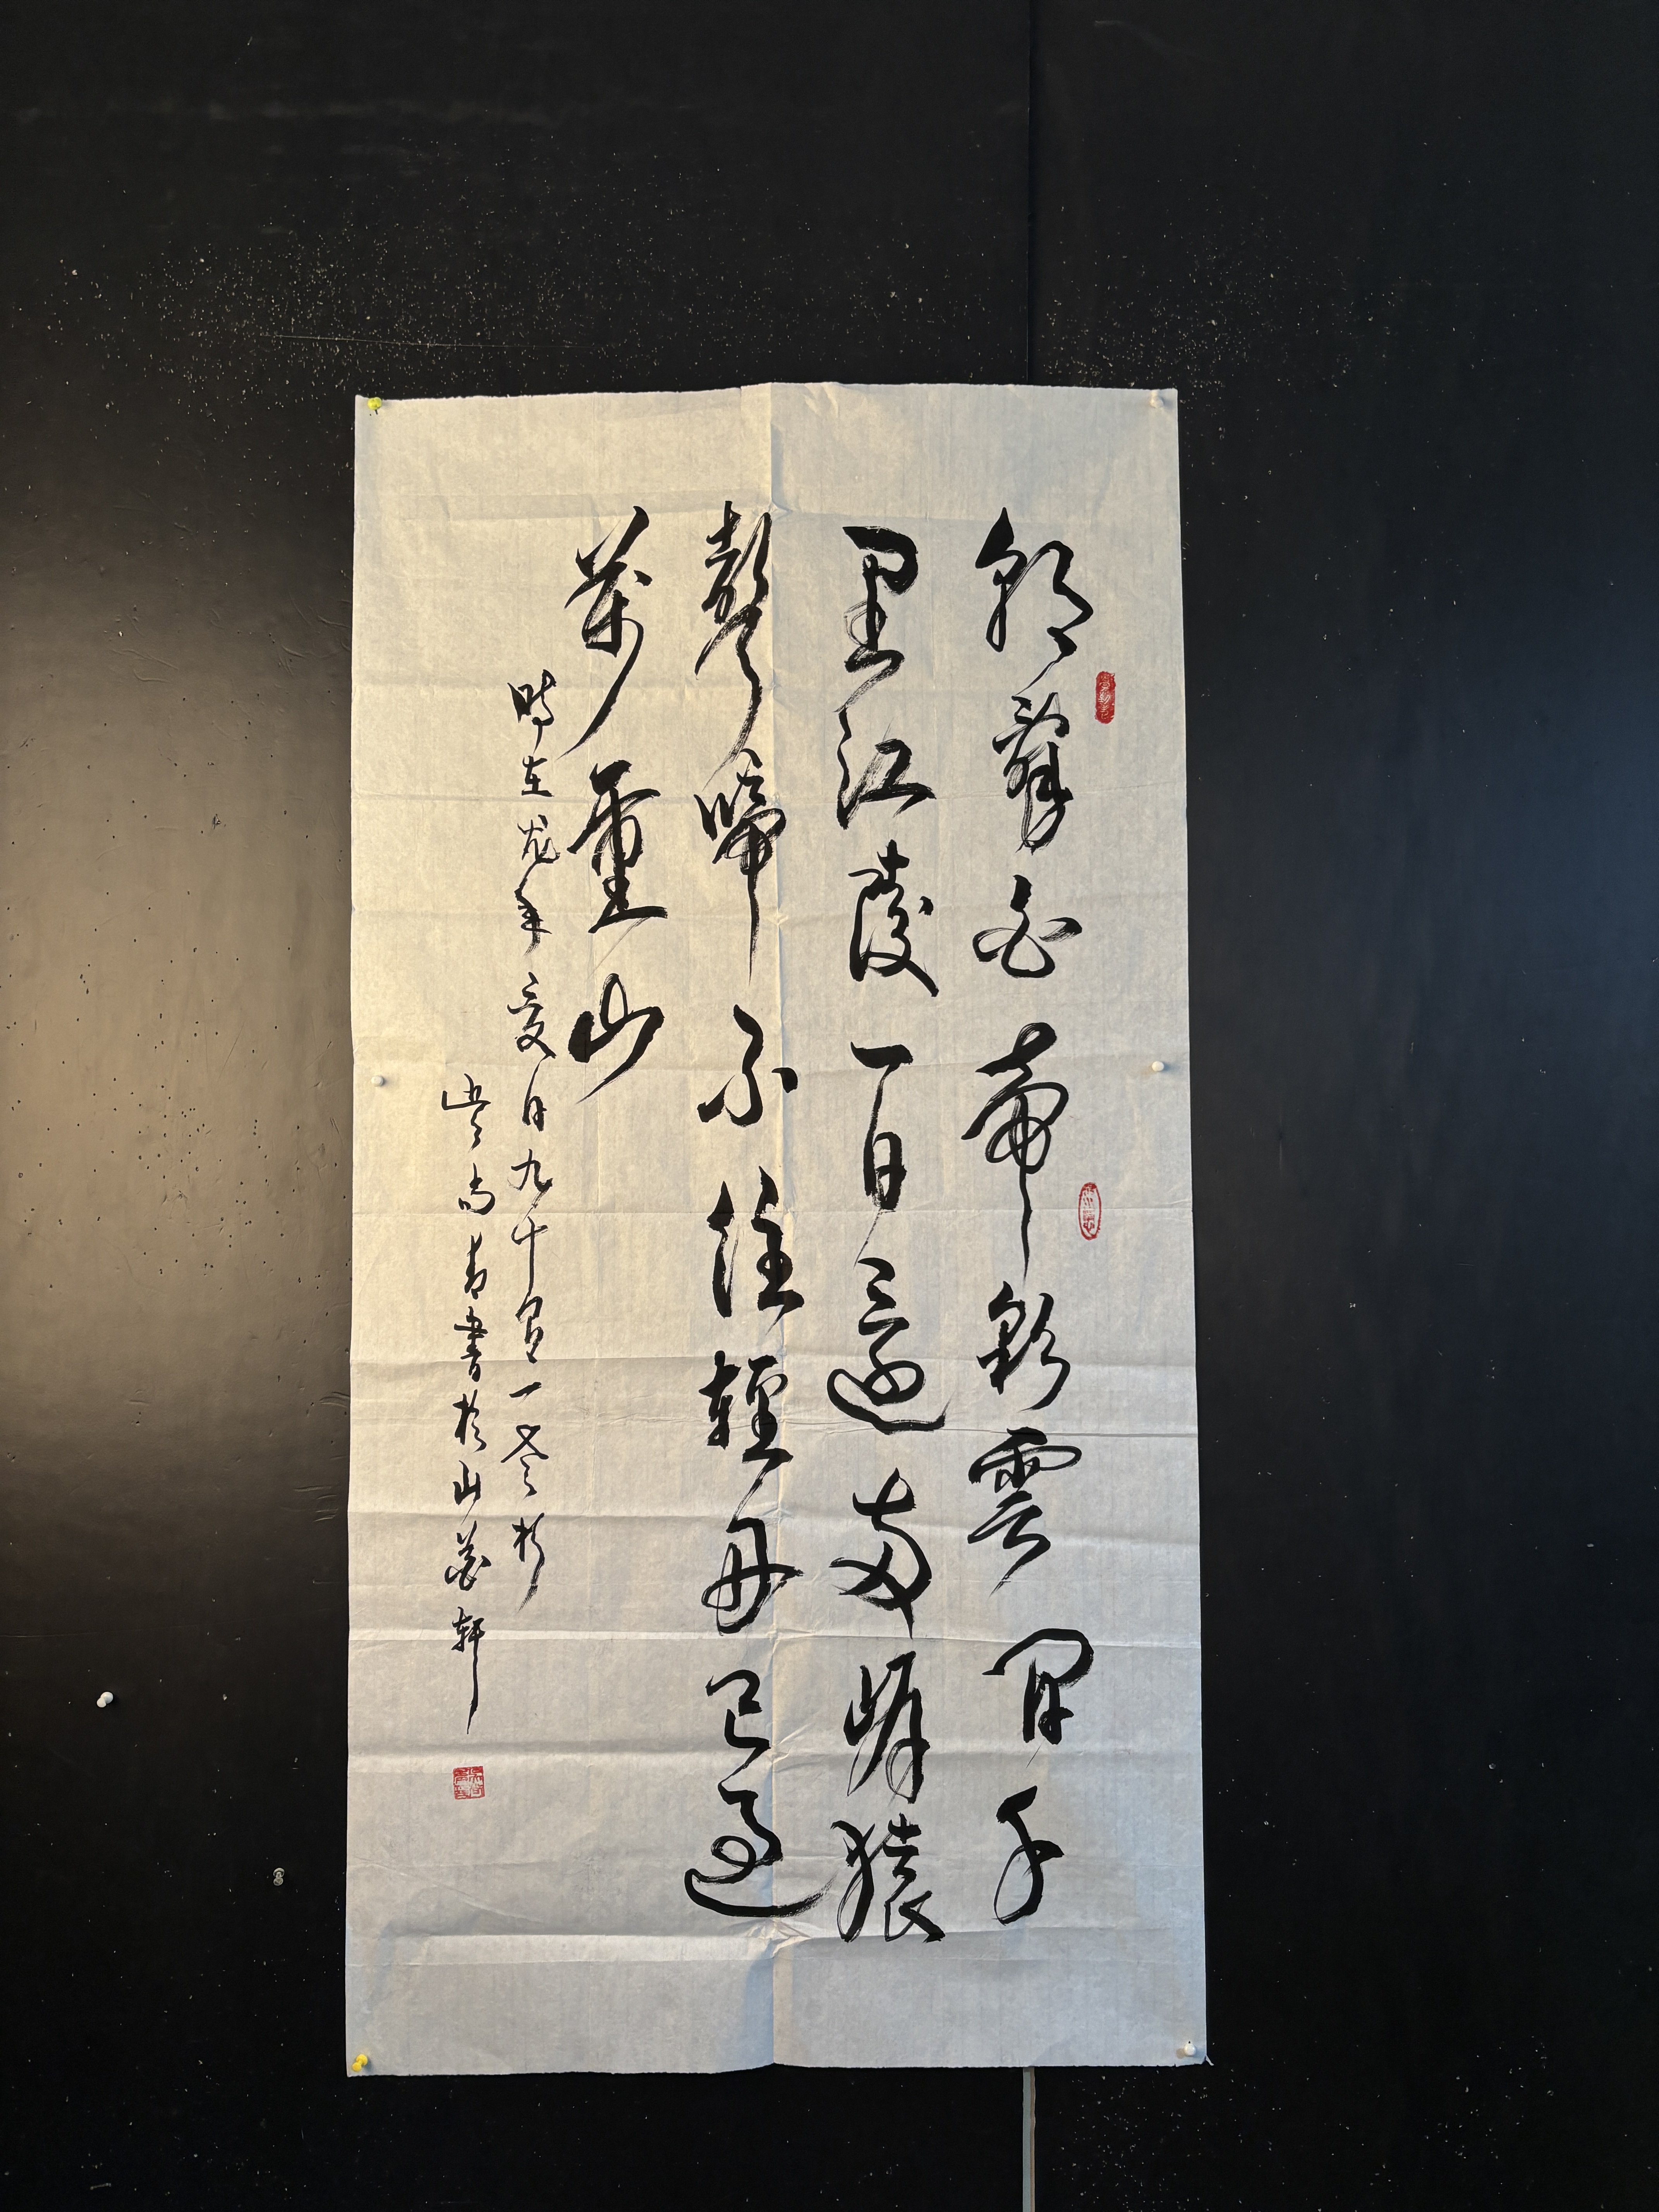 朝辭白帝彩雲間千
里江陵一日還兩岸猿
聲啼不住輕舟已過
萬重山
時在龙年夏月九十有一老彬
尚书書於山花轩